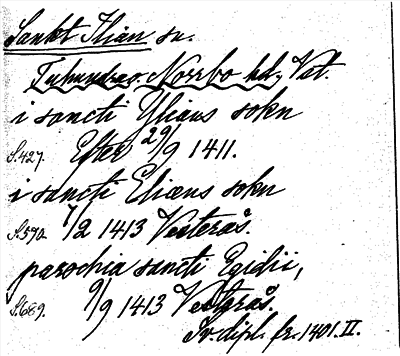 Sankt Ilian sn.
Tuhundra o. Norrbo hd, Vst.
i sancti Ylians sokn
S.427. Efter 29/9 1411.
i sancti Eliæns sokn
S.592 7/2 1413 Vesterås.
parochia sancti Egidii,
S.689. 9/9 1413 Vestgrås.
Sv. dipl. fr. 1401. II.